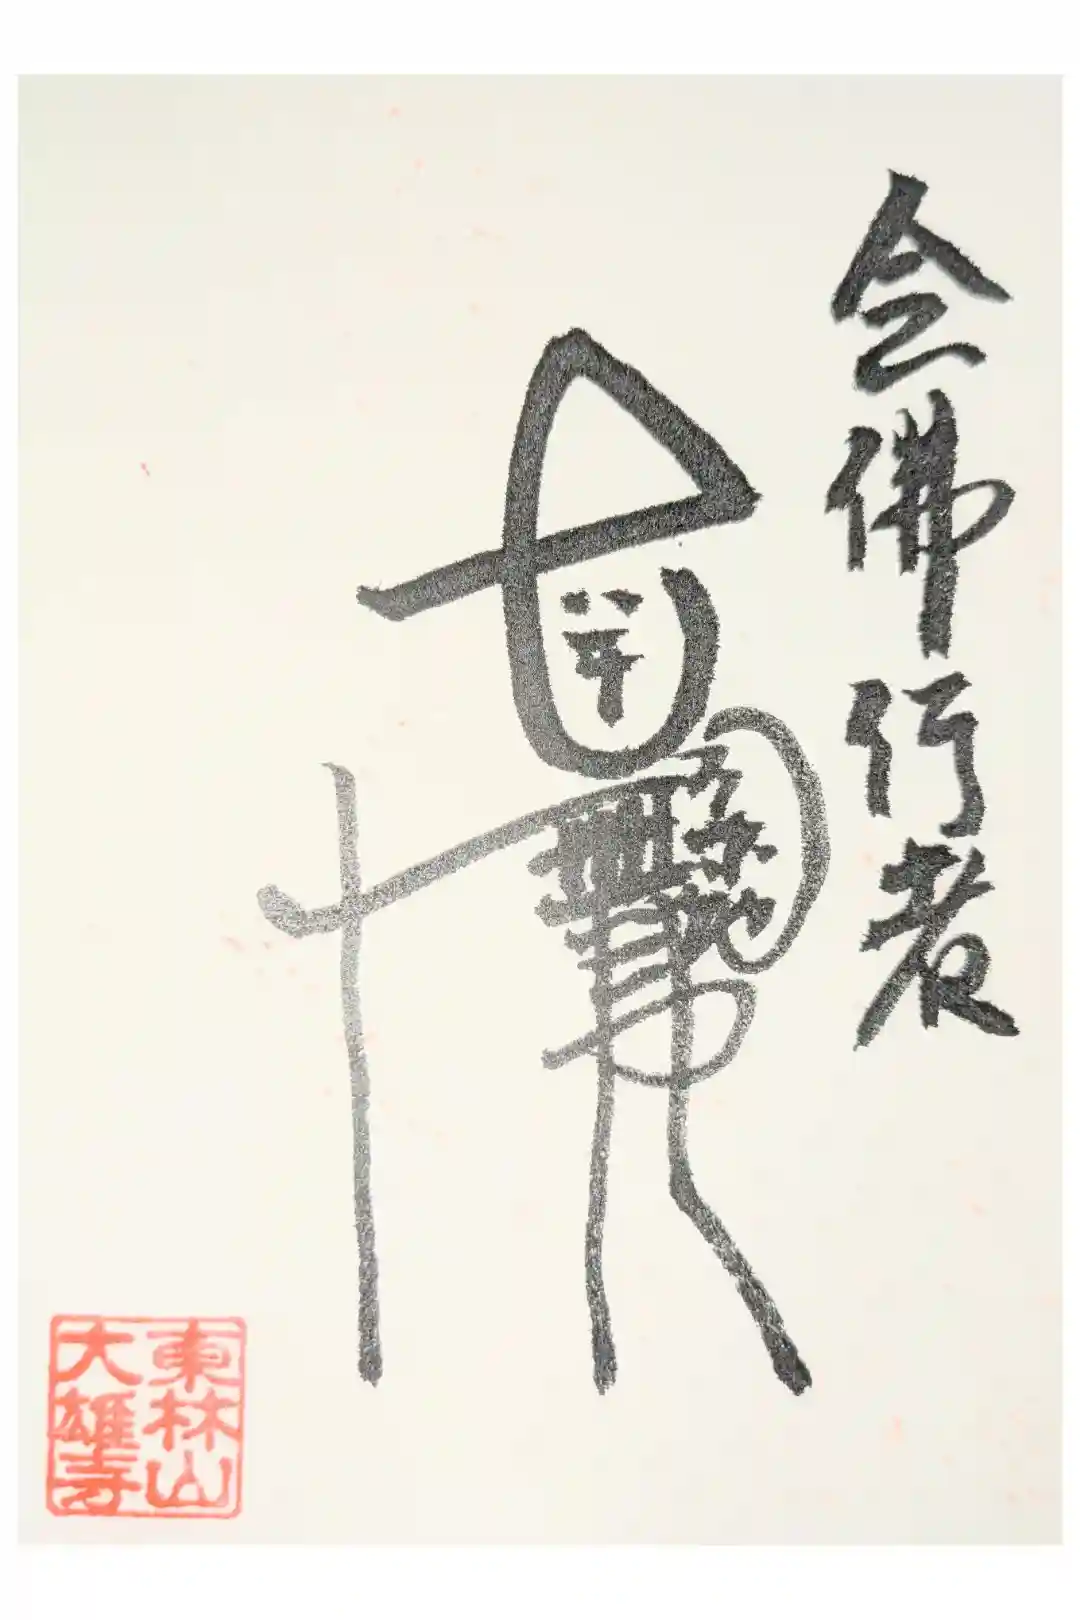 念佛行者
東林山
大雄寺